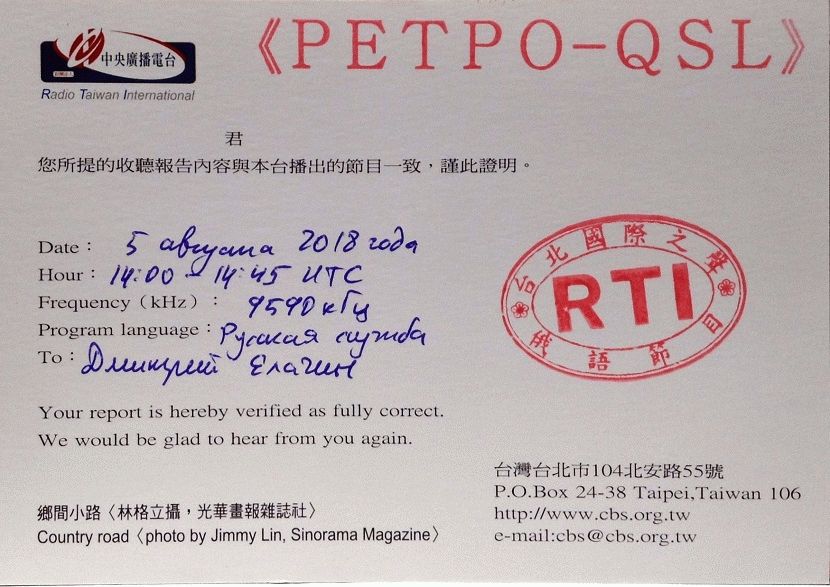 《РЕТРО-QSL》
中央廣播電台
Radio Taiwan International
君
您所提的收聽報告內容與本台播出的節目一致，謹此證明。
Date： 5 августа 2018 года
Hour： 14:00 - 14:45 UTC
Frequency（kHz）： 9590 кГц
Program language： Русская служба
To： Дмитрий Елагин
台北國際之聲
RTI
俄語節目
Your report is hereby verified as fully correct.
We would be glad to hear from you again.
台灣台北市104北安路55號
P.O.Box 24-38 Taipei,Taiwan 106
http://www.cbs.org.tw
e-mail:cbs@cbs.org.tw
鄉間小路〈林格立攝，光華畫報雜誌社〉
Country road〈photo by Jimmy Lin, Sinorama Magazine〉